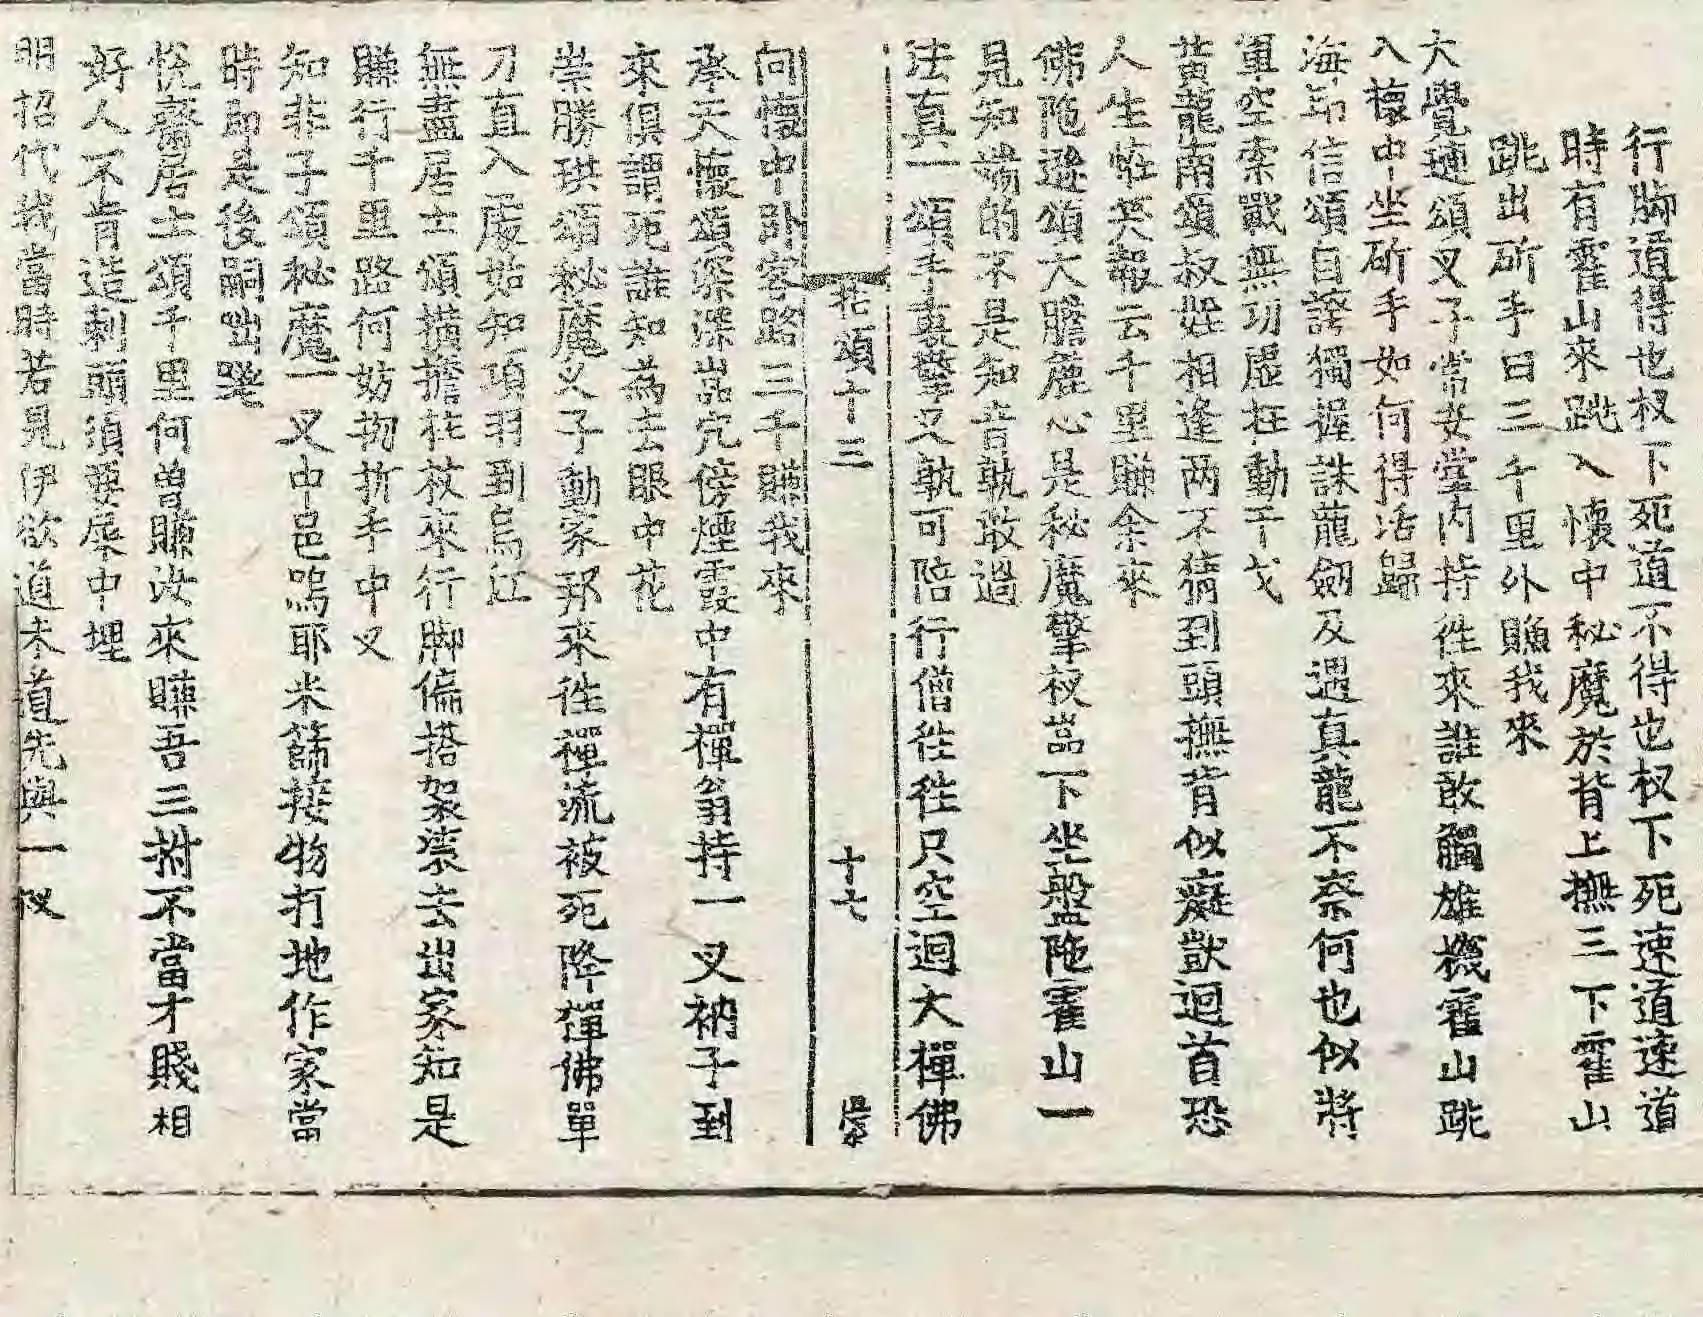 行脚道得也杈下死道不得也杈下死速道速道
時有霍山來跳入懷中秘魔於背上撫三下霍山
跳出斫手曰三千里外賺我來
大覺璉頌叉子常安堂內持徃來誰敢觸雄機霍山跳
入懷中坐斫手如何得活歸
海印信頌自誇獨握誅龍劒及遇真龍不奈何也似將
軍空索戰無功虛枉動干戈
黃龍南頌叔姪相逢两不猜到頭撫背似癡獃迴首恐
人生恠笑報云千里賺余來
佛陁遜頌大膽麤心是秘魔擎杈嵓下坐盤陁霍山一
見知端的不是知音孰敢過
法真一頌手褁擎叉孰可陪行僧徃徃只空迴大禪佛
拈頌十三
十七
向懷中卧客路三千賺我來
承天懷頌深深嵓穴傍煙霞中有禪翁持一叉衲子到
來俱謂死誰知為去眼中花
崇勝珙頌秘魔叉子動家邦來徃禪流被死降禪佛單
刀直入處始知項羽到烏江
無盡居士頌橫擔拄杖來行脚偏搭袈裟去出家知是
賺行千里路何妨拗折手中叉
知非子頌秘魔一叉中邑嗚耶米篩接物打地作家當
時即是後嗣咄噗
悅齋居士頌千里何曾賺汝來賺吾三拊不當才賤相
好人不肯造刺頭須要屎中埋
明招代我當時若見伊欲道未道先與一杈